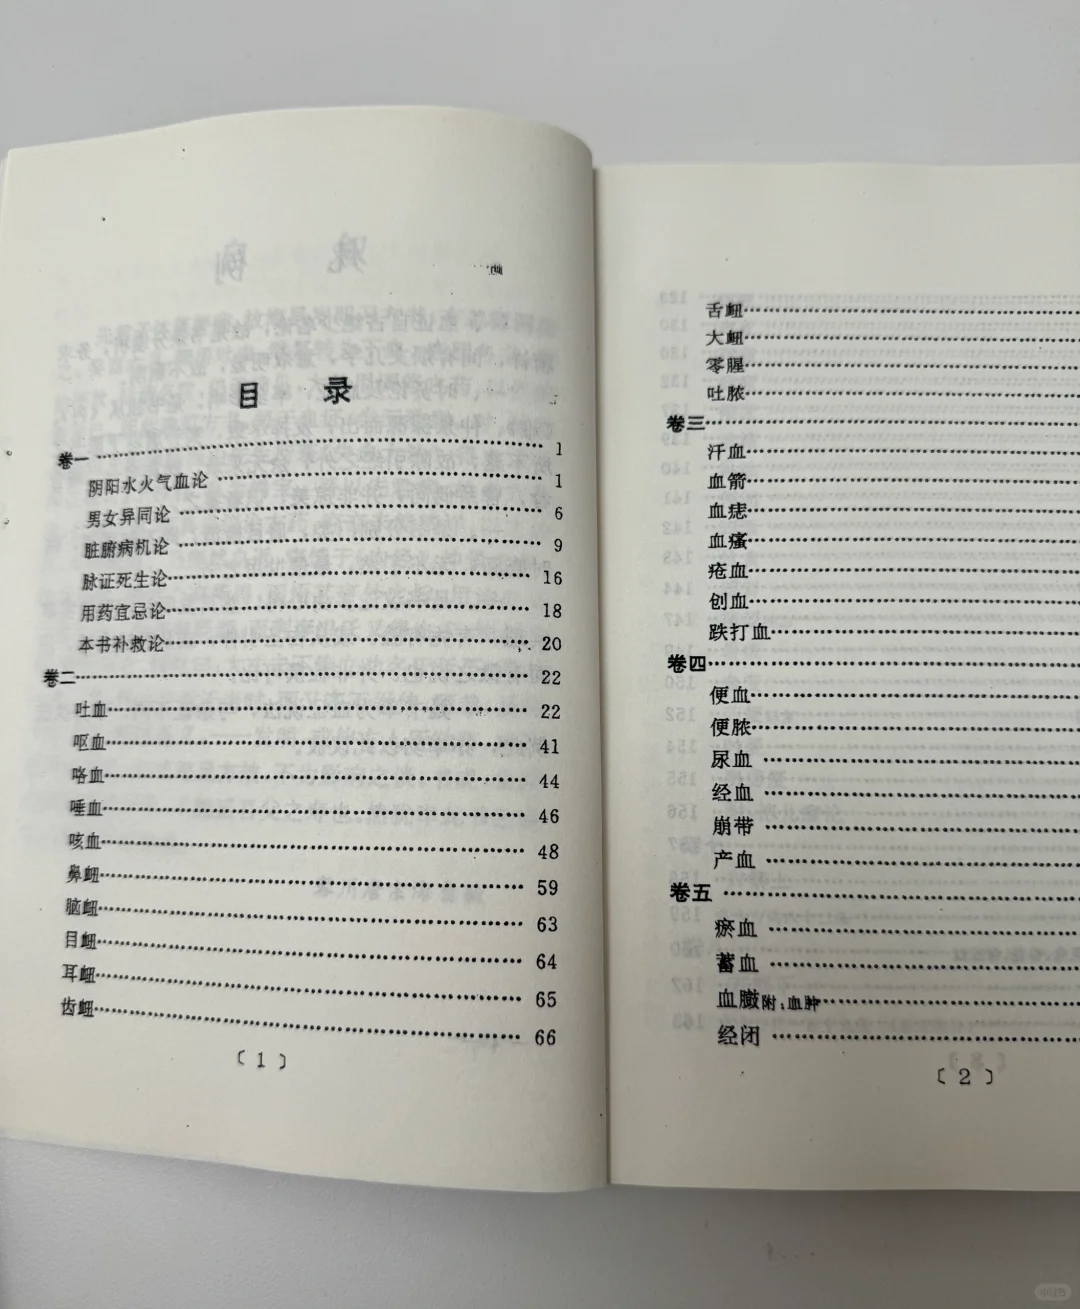 目 录
卷一……1
阴阳水火气血论……1
男女异同论……6
脏腑病机论……9
脉证死生论……16
用药宜忌论……18
本书补救论……20
卷二……22
吐血……22
呕血……41
咯血……44
唾血……46
咳血……48
鼻衄……59
脑衄……63
目衄……64
耳衄……65
齿衄……66
〔1〕
舌衄……
大衄……
零腥……
吐脓……
卷三……
汗血……
血箭……
血痣……
血瘙……
疮血……
创血……
跌打血……
卷四……
便血……
便脓……
尿血……
经血……
崩带……
产血……
卷五……
瘀血……
蓄血……
血臌附:血肿……
经闭……
〔2〕
小红书